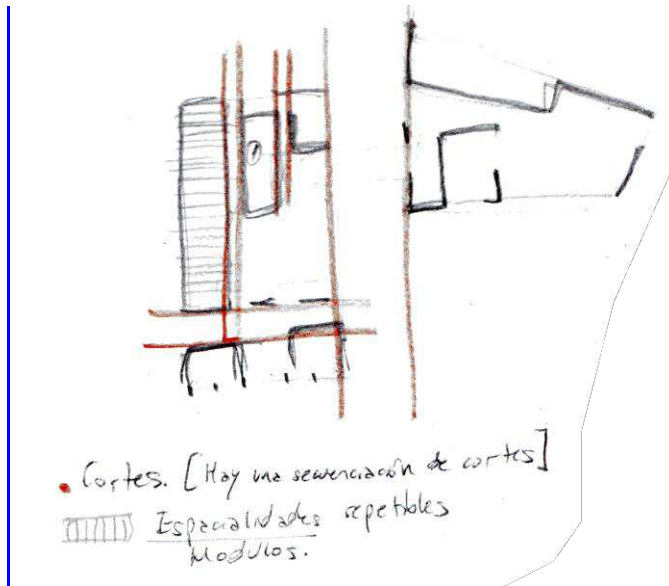 Cortes. [Hay una secuenciación de cortes]
Espacialidades repetibles
Modulos.